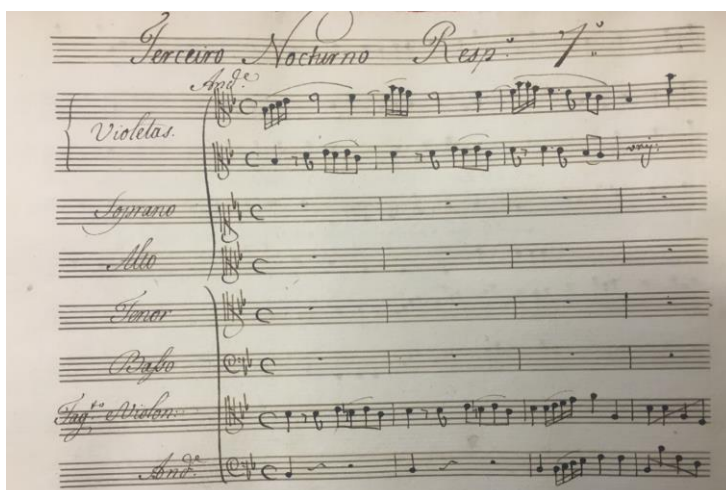 Terceiro Nocturno Resp.º 7.º
And.e
Violetas.
unis:
Soprano
Alto
Tenor
Basso
Fag.to e Violon:
And.e